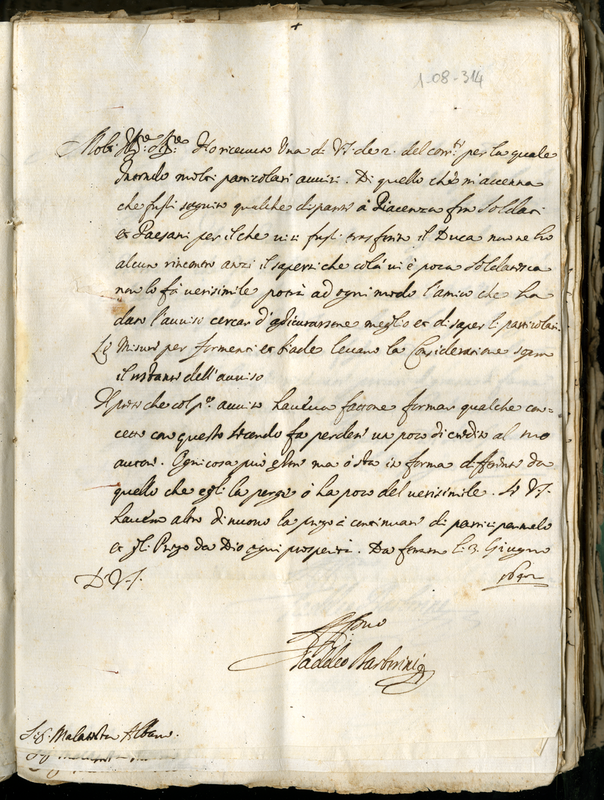 1-08-314
Ho riceuuto Una di V.S. de 2. del corr.te per la quale
molti particolari auuisi. Di quello che m'accenna
che fusse seguito qualche disparere à Piacenza fra Soldati
et Paesani per il che ui si fusse trasferito il Duca non ne ho
alcun rincontro anzi il sapersi che colà ui è poca soldatesca
non lo fà uerisimile potrà ad ogni modo l'amico che ha
dato l'auuiso cercar d'assicurarsene meglio et di saper li particolari.
Le Misure per formenti et biade leuano la Consideratione sopra
il restante dell'auuiso
che col p.o auuiso haueua facc formar qualche con=
cetto con questo secondo fa perdere un poco di credito al suo
autore. Ogni cosa può esser ma ò sta in forma differente da
quello che egli la porge ò ha poco del uerisimile. Se V.S.
hauerà altro di nuouo la prego à continuare di participarmelo
et gli Prego da Dio ogni prosperità. Da ferrara li 3. Giugno
D. V.S. 1642
Taddeo Barberini
Sig. Malatesta Albani.